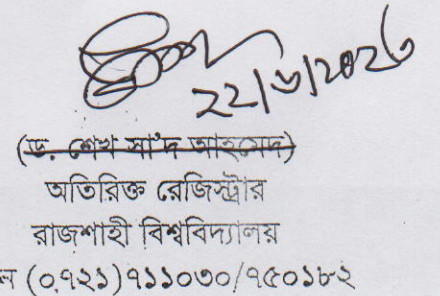 ২২/৬/২০২৩
(ড. শেখ সা'দ আহমেদ)
অতিরিক্ত রেজিস্ট্রার
রাজশাহী বিশ্ববিদ্যালয়
ন (০৭২১)৭১১০৩০/৭৫০১৮২